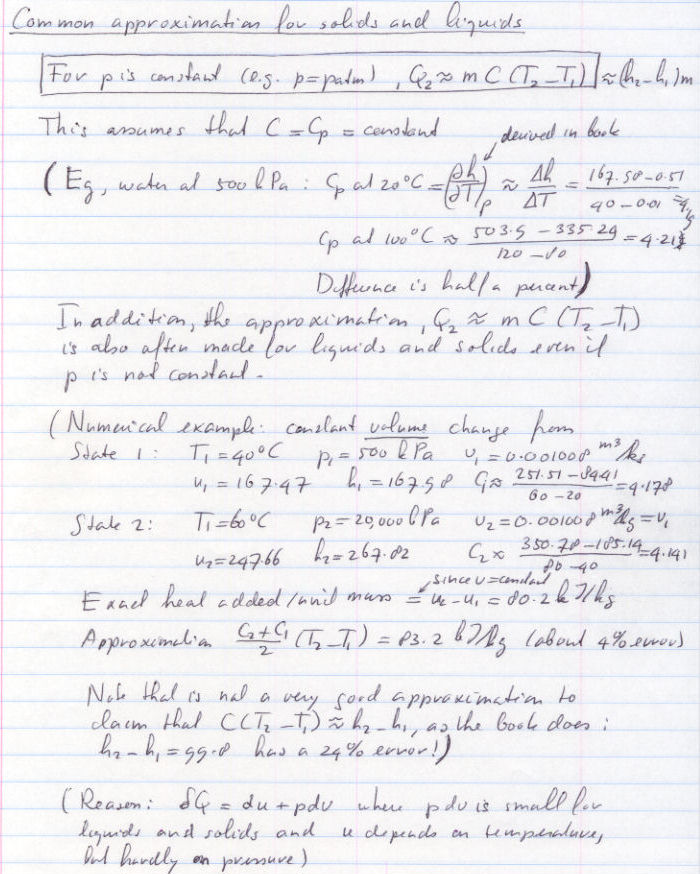 Common approximation for solids and liquids
For p is constant (e.g. p=patm), Q₂ ≈ m C (T₂-T₁) ≈ (h₂-h₁)m
This assumes that C = Cp = constant
derived in book
(Eg, water at 500 kPa : Cp at 20°C = (∂h/∂T)p ≈ Δh/ΔT = (167.58-0.51)/(40-0.01) =
Cp at 100°C ≈ (503.5 - 335.29)/(120-80) = 4.21
Difference is half a percent)
In addition, the approximation, Q₂ ≈ m C (T₂-T₁)
is also often made for liquids and solids even if
p is not constant.
(Numerical example: constant volume change from
State 1: T₁=40°C p₁=500 kPa υ₁=0.001008 m³/kg
u₁=167.47 h₁=167.98 C₁≈ (251.51-84.41)/(60-20) =4.178
State 2: T₁=60°C p₂=20,000 kPa υ₂=0.001008 m³/kg=υ₁
u₂=247.66 h₂=267.82 C₂≈ (350.78-185.14)/(80-40) =4.141
since υ=constant
Exact heat added/unit mass = u₂-u₁ = 80.2 kJ/kg
Approximation (C₂+C₁)/2 (T₂-T₁) = 83.2 kJ/kg (about 4% error)
Note that is not a very good approximation to
claim that C(T₂-T₁) ≈ h₂-h₁, as the book does:
h₂-h₁=99.8 has a 24% error!)
(Reason: δQ = du+pdυ where pdυ is small for
liquids and solids and u depends on temperature,
but hardly on pressure)